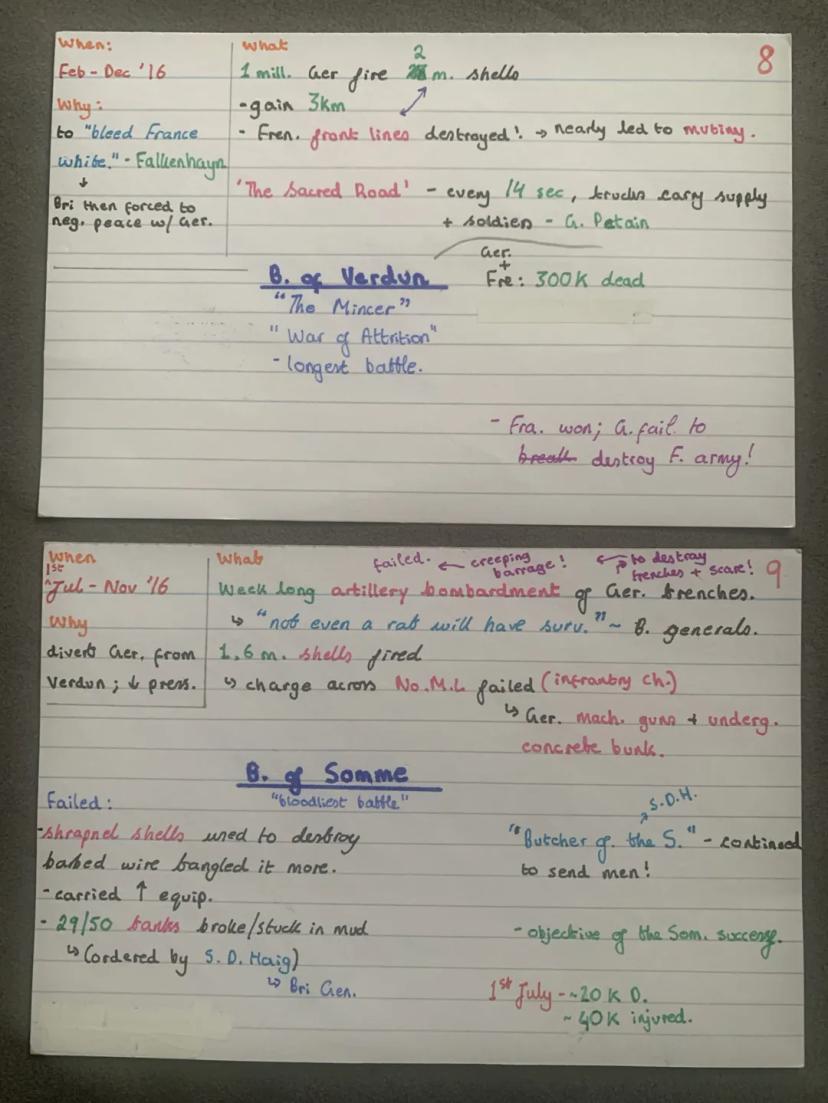 8
When:
Feb - Dec '16
Why:
to "bleed France
white." - Falkenhayn
↓
Bri then forced to
neg. peace w/ Ger.
What
2
1 mill. Ger fire m. shells
- gain 3km
- Fren. front lines destroyed! → nearly led to mutiny.
'The Sacred Road' - every 14 sec, trucks cary supply
+ soldiers - G. Petain
B. of Verdun
"The Mincer"
"War of Attrition"
- longest battle.
Ger.
+
Fre: 300K dead
- Fra. won; G. fail to
break destroy F. army!
9
When
1st
^Jul - Nov '16
Why
divert Ger. from
Verdun; ↓ press.
What
failed. ← creeping
barrage!
to destroy
trenches + scare!
Week long artillery bombardment of Ger. trenches.
↳ "not even a rat will have surv." ~ B. generals.
1.6 m. shells fired
↳ charge across No.M.L failed (infrantry ch.)
↳ Ger. mach. guns + underg.
concrete bunk.
B. of Somme
"bloodliest battle"
Failed:
- shrapnel shells used to destroy
barbed wire tangled it more.
- carried ↑ equip.
- 29/50 tanks broke/stuck in mud
↳ (ordered by S. D. Haig)
↳ Bri Gen.
S.D.H.
"Butcher of the S." - continued
to send men!
- objective of the Som. successf.
1st July - ~20K D.
~ 40K injured.